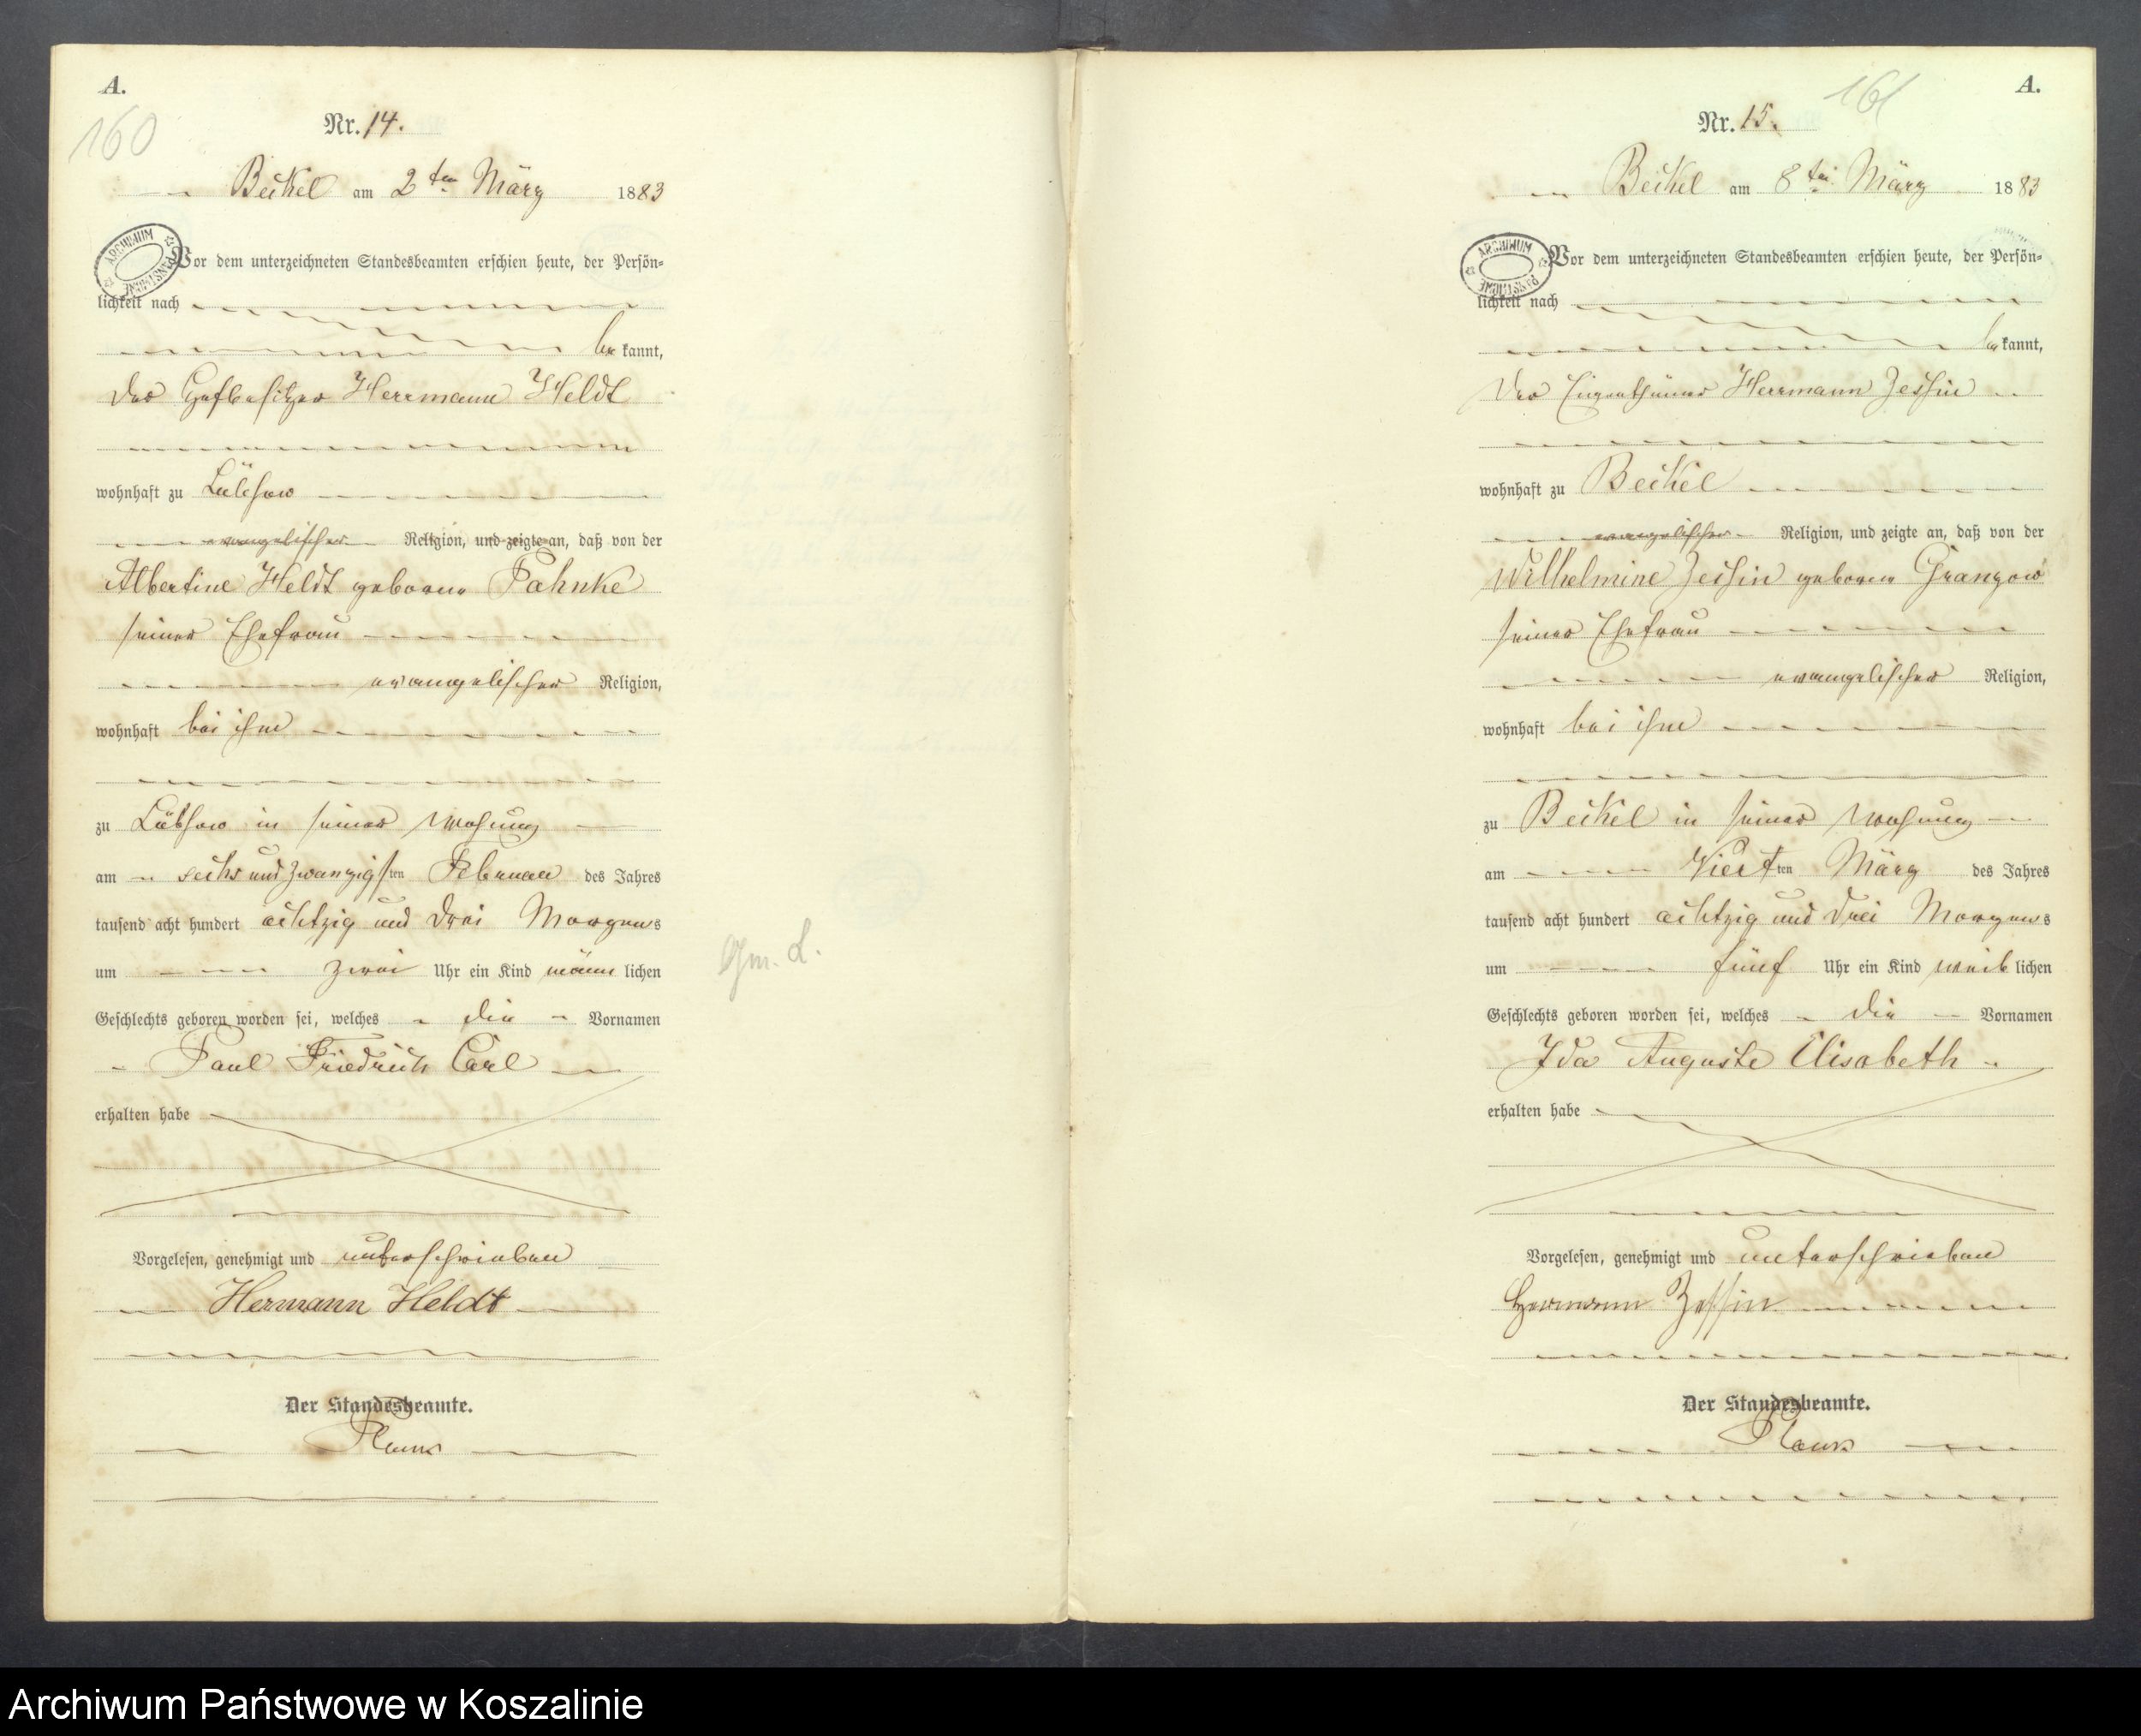 A.
160
Nr. 14.
Beikel am 2ten März 1883
ARCHIWUM PAŃSTWOWE
Vor dem unterzeichneten Standesbeamten erschien heute, der Persön=
lichkeit nach
be kannt,
der Hofbesitzer Herrmann Heldt
wohnhaft zu Lübsow
evangelischer Religion, und zeigte an, daß von der
Albertine Heldt geborene Pahnke
seiner Ehefrau
evangelischer Religion,
wohnhaft bei ihm
zu Lübsow in seiner Wohung
am sechs und zwanzigsten Februar des Jahres
tausend acht hundert achtzig und drei Morgens
um zwei Uhr ein Kind männ lichen
Geschlechts geboren worden sei, welches die Vornamen
Paul Friedrich Carl
erhalten habe
Vorgelesen, genehmigt und unterschrieben
Hermann Heldt
Der Standesbeamte.
Gm. L.
A.
161
Nr. 15.
Beikel am 8ten März 1883
ARCHIWUM PAŃSTWOWE
Vor dem unterzeichneten Standesbeamten erschien heute, der Persön=
lichkeit nach
be kannt,
der Eigenthümer Herrmann Zessin
wohnhaft zu Beikel
evangelischer Religion, und zeigte an, daß von der
Wilhelmine Zessin geborene Granzow
seiner Ehefrau
evangelischer Religion,
wohnhaft bei ihm
zu Beikel in seiner Wohung
am Vierten März des Jahres
tausend acht hundert achtzig und drei Morgens
um fünf Uhr ein Kind weib lichen
Geschlechts geboren worden sei, welches die Vornamen
Ida Auguste Elisabeth
erhalten habe
Vorgelesen, genehmigt und unterschrieben
Hermann Zessin
Der Standesbeamte.
Archiwum Państwowe w Koszalinie